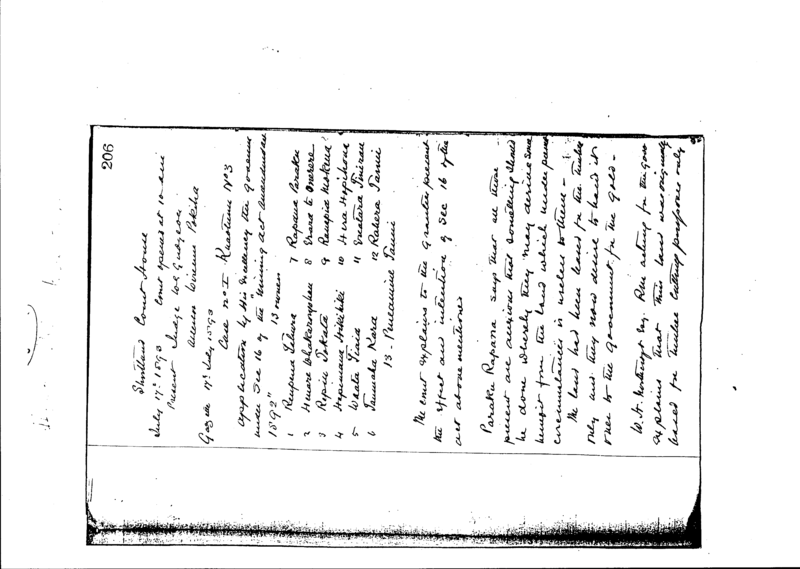 206
Shortland Court House
July 17th 1893 Court opened at 10 a.m.
Present Judge W.E. Gudgeon
Wiremu Pokiha
Gazette 17th July 1893
Case No 1 Ruatuna No 3
Application by His Excellency the Governor
under Sec 16 of the "Mining Act Amendment
1892" 13 owners
1 7 Rapana Paraku
2 Henare Whakarongohau 8
3 Repiu Tekata 9 Renepia Mokena
4 Hopimana Hikihiki 10 Hera Hopihona
5 Waata Tinia 11
6 Tamaka Kara 12 Rahera Tanui
13 - Tanui
The Court explains to the Grantees present
the effect and intention of Sec 16 of the
act above mentioned
Paraku Rapana says that all those
present are anxious that something should
be done whereby they may derive some
benefit from the land which under present
circumstances is useless to them -
The land had been leased for the timber
only and they now desire to hand it
over to the Government for the gold -
W.H. Northcroft Esq. R.M. acting for the Gov
explains that this land was originally
leased for timber cutting purposes only